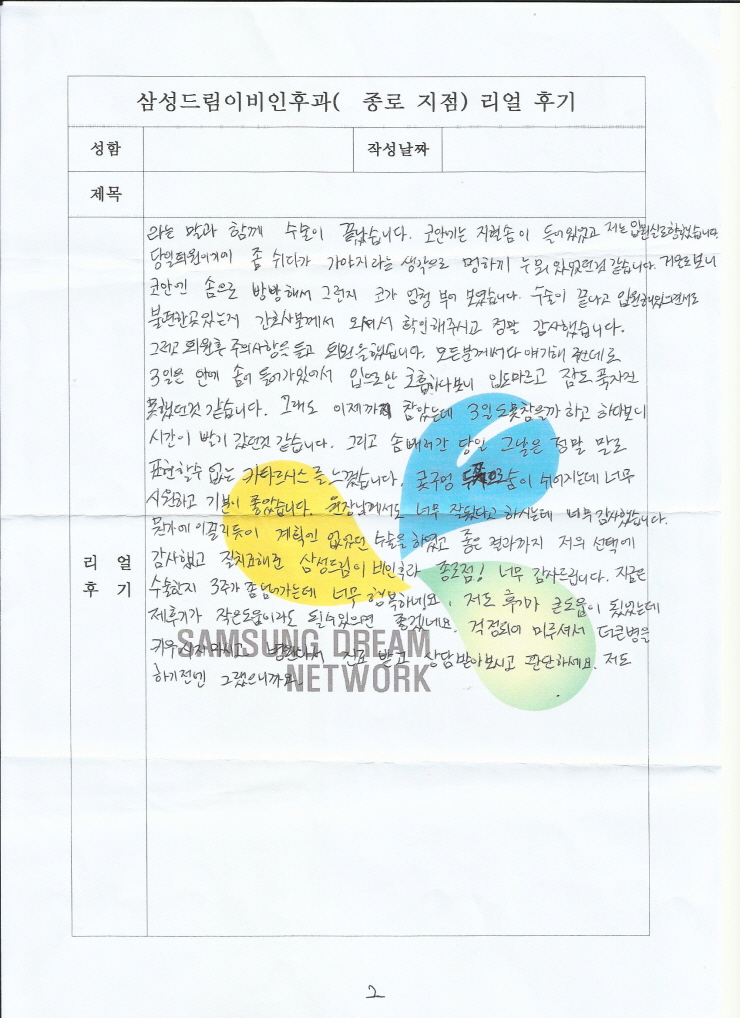 삼성드림이비인후과( 종로 지점) 리얼 후기
성함
작성날짜
제목
라는 말과 함께 수술이 끝났습니다. 코안에는 지혈솜이 들어있었고 저는 입원실로향했습니다.
당일퇴원이기에 좀 쉬다가 가야지라는 생각으로 멍하게 누워 있었던것 같습니다. 거울을보니
코안엔 솜으로 빵빵해서 그런지 코가 엄청 부어 보였습니다. 수술이 끝나고 입원해있으면서도
불편한곳있는지 간호사분께서 오셔서 확인해주시고 정말 감사했습니다.
그리고 퇴원후 주의사항을듣고 퇴원을했습니다. 모든분께서다 얘기해 주신데로
3일은 안에 솜이 들어가있어서 입으로만 호흡하다보니 입도마르고 잠도 푹자진
못했던것 같습니다. 그래도 이제까지 참았는데 3일도못참을까 하고 하다보니
시간이 빨리 갔던것 같습니다. 그리고 솜빼러간 당일 그날은 정말 말로
표현할수 없는 카타르시스를 느꼈습니다. 콧구멍 쪽으로숨이 쉬어지는데 너무
시원하고 기분이 좋았습니다. 원장님께서도 너무 잘됬다고 하시는데 너무감사했습니다.
뭔가에 이끌리듯이 계획인 없었던 수술을 하였고 좋은 결과까지 저의 선택에
감사했고 잘치료해준 삼성드림이비인후과 종로점! 너무 감사드립니다. 지금은
수술한지 3주가좀넘어가는데 너무 행복하네요. 저도 후기가 큰도움이 됬었는데
제후기가 작은도움이라도 될수있으면 좋겠네요. 걱정되어 미루셔서 더큰병을
키우시지마시고 병원가서 진료 받고 상담받아보시고 판단하세요. 저도
하기전엔 그랬으니까요.
리 얼
후 기
SAMSUNG DREAM
NETWORK
2